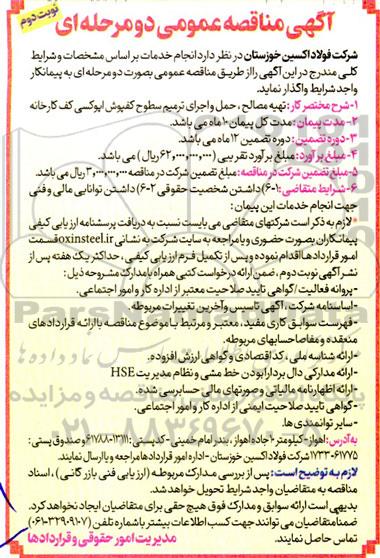 نوبت دوم
آگهی مناقصه عمومی دو مرحله ای
شرکت فولاد اکسین خوزستان در نظر دارد انجام خدمات بر اساس مشخصات و شرایط
کلی مندرج در این آگهی را از طریق مناقصه عمومی بصورت دو مرحله ای به پیمانکار
واجد شرایط واگذار نماید.
۱- شرح مختصر کار: تهیه مصالح، حمل و اجرای ترمیم سطوح کفپوش اپوکسی کف کارخانه
۲- مدت پیمان: مدت کل پیمان ۱۰ ماه می باشد.
۳- دوره تضمین: دوره تضمین ۱۲ ماه می باشد.
۴- مبلغ برآورد: مبلغ برآورد تقریبی (۶۲،۰۰۰،۰۰۰،۰۰۰ ریال) می باشد.
۵- مبلغ تضمین شرکت در مناقصه: مبلغ تضمین شرکت در مناقصه ۳،۰۰۰،۰۰۰،۰۰۰ ریال می باشد.
۶- شرایط متقاضی: ۶-۱) داشتن شخصیت حقوقی ۶-۲) داشتن توانایی مالی و فنی
جهت انجام خدمات این پیمان:
* لازم به ذکر است شرکتهای متقاضی می بایست نسبت به دریافت پرسشنامه ارزیابی کیفی
پیمانکاران بصورت حضوری و یا مراجعه به سایت شرکت به نشانی oxinsteel.ir قسمت
امور قراردادها اقدام نموده و پس از تکمیل فرم ارزیابی کیفی، حداکثر یک هفته پس از
نشر آگهی نوبت دوم، ضمن ارائه درخواست کتبی همراه با مدارک مشروحه ذیل:
- پروانه فعالیت / گواهی تایید صلاحیت معتبر از اداره کار و امور اجتماعی.
- اساسنامه شرکت، آگهی تاسیس و آخرین تغییرات مربوطه.
- فهرست سوابق کاری مفید، معتبر و مرتبط با موضوع مناقصه با ارائه قراردادهای
منعقده و مفاصاحسابهای مربوطه.
- ارائه شناسه ملی، کد اقتصادی و گواهی ارزش افزوده.
- ارائه مدارکی دال بر دارا بودن خط مشی و نظام مدیریت HSE
- ارائه اظهارنامه مالیاتی و صورتهای مالی حسابرسی شده.
- گواهی تایید صلاحیت ایمنی از اداره کار و امور اجتماعی.
- سایر توانمندی ها.
به آدرس: اهواز - کیلومتر ۱۰ جاده اهواز، بندر امام خمینی - کدپستی: ۶۱۷۸۸۰۱۳۱۱۱ و صندوق پستی:
۱۷۳۳-۶۱۷۷۵ شرکت فولاد اکسین خوزستان - اداره امور قراردادها مراجعه و یا ارسال نمایند.
لازم به توضیح است: پس از بررسی مدارک مربوطه (ارزیابی فنی بازرگانی)، اسناد
مناقصه به متقاضیان واجد شرایط تحویل خواهد شد.
بدیهی است ارائه سوابق و مدارک فوق هیچ حقی برای متقاضیان ایجاد نخواهد کرد.
ضمنا متقاضیان می توانند جهت کسب اطلاعات بیشتر با شماره تلفن (۳۲۹۰۹۱۰۷-۰۶۱)
تماس حاصل نمایند.
مدیریت امور حقوقی و قراردادها